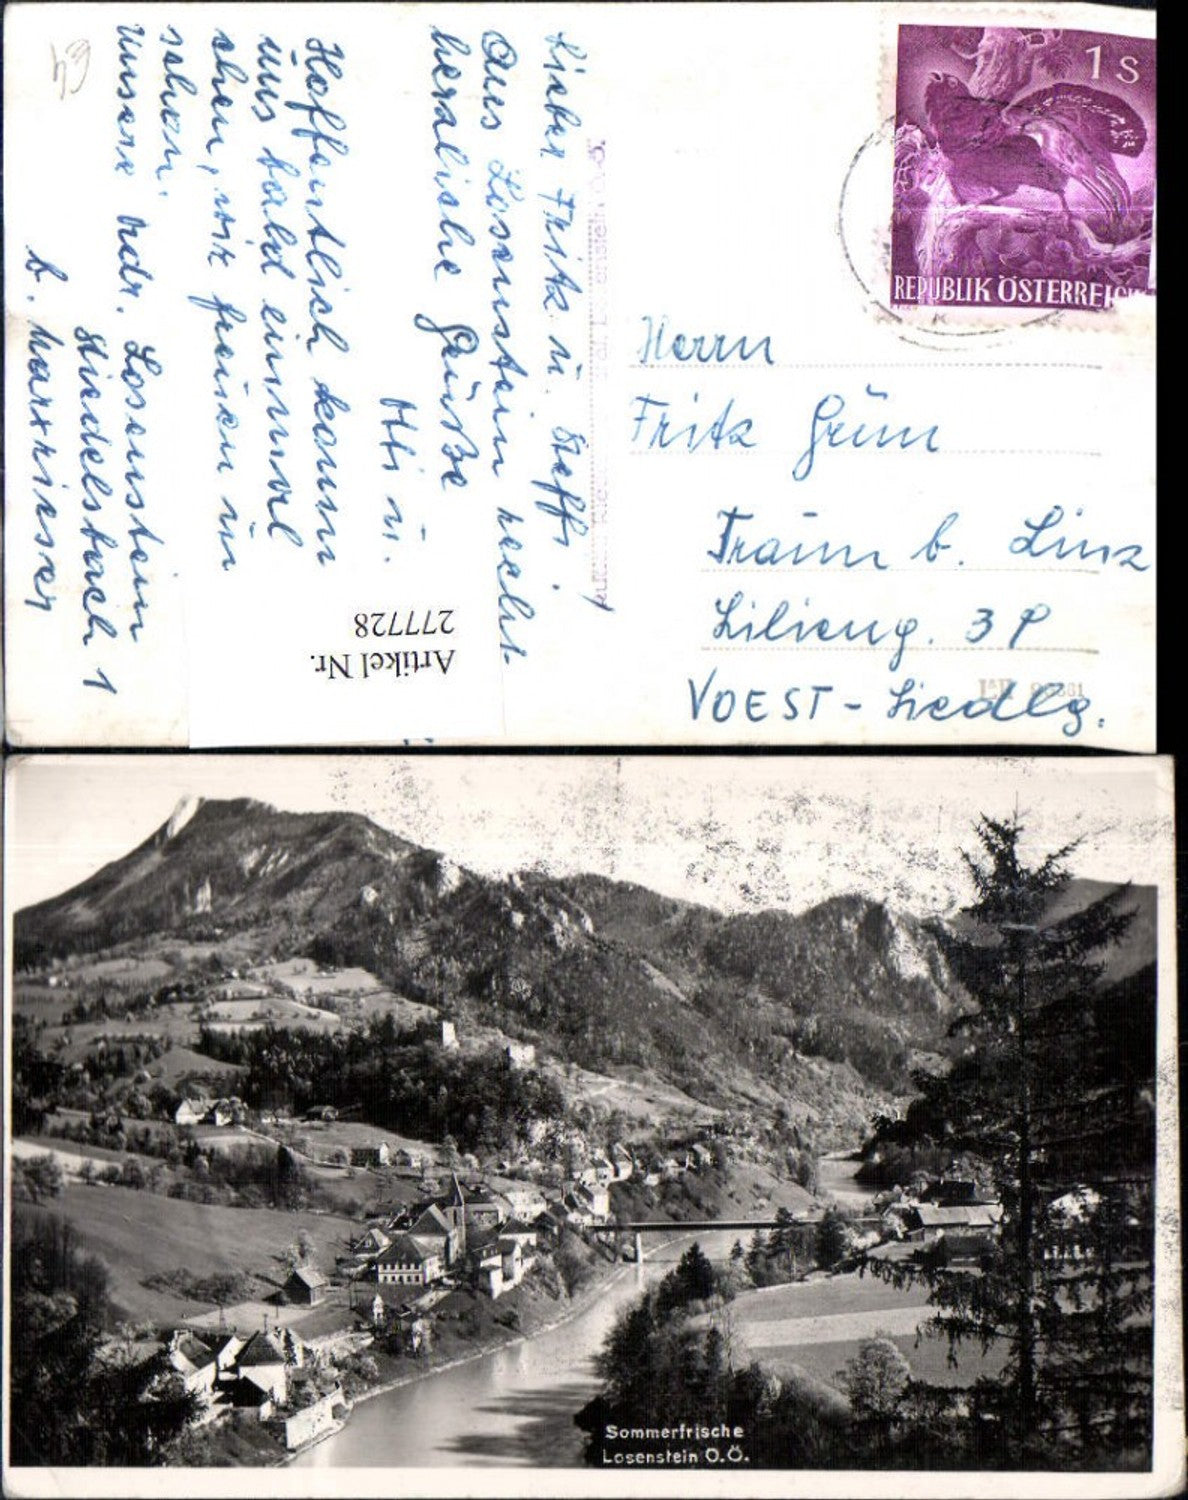 Lieber Fritz u. Steffi.
Aus Losenstein recht
herzliche Grüße
Otti u.
Hoffentlich kann
uns bald einmal
sehen, wir freuen uns
schon.
Unsere Adr. Losenstein
Stiedelsbach 1
b.
1 S
REPUBLIK ÖSTERREICH
Herrn
Fritz Grün
Traun b. Linz
Lilieng. 3 P
VOEST - Siedlg.
Artikel Nr.
277728
Sommerfrische
Losenstein O.Ö.